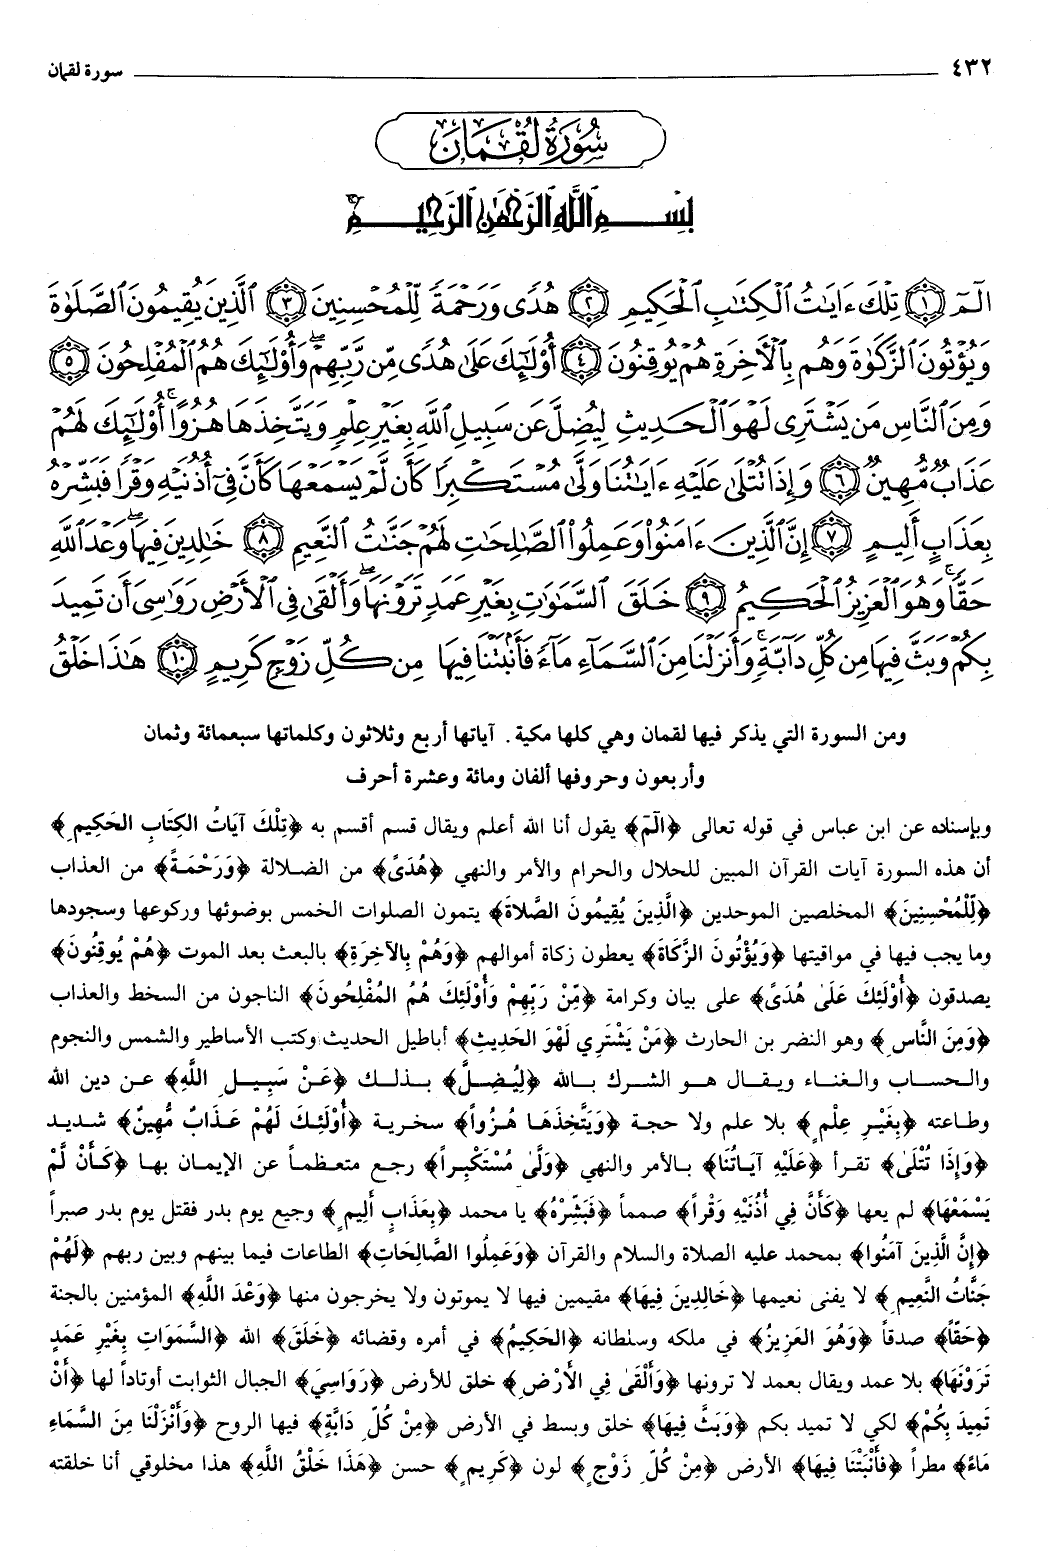 ٤٣٢ سورة لقمان
سُورَةُ لُقْمَانَ
بِسْمِ ٱللَّهِ ٱلرَّحْمَٰنِ ٱلرَّحِيمِ
الٓمٓ ١ تِلْكَ ءَايَٰتُ ٱلْكِتَٰبِ ٱلْحَكِيمِ ٢ هُدًى وَرَحْمَةً لِّلْمُحْسِنِينَ ٣ ٱلَّذِينَ يُقِيمُونَ ٱلصَّلَوٰةَ
وَيُؤْتُونَ ٱلزَّكَوٰةَ وَهُم بِٱلْأَخِرَةِ هُمْ يُوقِنُونَ ٤ أُوْلَٰٓئِكَ عَلَىٰ هُدًى مِّن رَّبِّهِمْ ۖ وَأُوْلَٰٓئِكَ هُمُ ٱلْمُفْلِحُونَ ٥
وَمِنَ ٱلنَّاسِ مَن يَشْتَرِى لَهْوَ ٱلْحَدِيثِ لِيُضِلَّ عَن سَبِيلِ ٱللَّهِ بِغَيْرِ عِلْمٍ وَيَتَّخِذَهَا هُزُوًا ۚ أُوْلَٰٓئِكَ لَهُمْ
عَذَابٌ مُّهِينٌ ٦ وَإِذَا تُتْلَىٰ عَلَيْهِ ءَايَٰتُنَا وَلَّىٰ مُسْتَكْبِرًا كَأَن لَّمْ يَسْمَعْهَا كَأَنَّ فِىٓ أُذُنَيْهِ وَقْرًا فَبَشِّرْهُ
بِعَذَابٍ أَلِيمٍ ٧ إِنَّ ٱلَّذِينَ ءَامَنُوا۟ وَعَمِلُوا۟ ٱلصَّٰلِحَٰتِ لَهُمْ جَنَّٰتُ ٱلنَّعِيمِ ٨ خَٰلِدِينَ فِيهَا ۖ وَعْدَ ٱللَّهِ
حَقًّا ۚ وَهُوَ ٱلْعَزِيزُ ٱلْحَكِيمُ ٩ خَلَقَ ٱلسَّمَٰوَٰتِ بِغَيْرِ عَمَدٍ تَرَوْنَهَا ۖ وَأَلْقَىٰ فِى ٱلْأَرْضِ رَوَٰسِىَ أَن تَمِيدَ
بِكُمْ وَبَثَّ فِيهَا مِن كُلِّ دَآبَّةٍ ۚ وَأَنزَلْنَا مِنَ ٱلسَّمَآءِ مَآءً فَأَنۢبَتْنَا فِيهَا مِن كُلِّ زَوْجٍ كَرِيمٍ ١٠ هَٰذَا خَلْقُ
ومن السورة التي يذكر فيها لقمان وهي كلها مكية. آياتها أربع وثلاثون وكلماتها سبعمائة وثمان
وأربعون وحروفها ألفان ومائة وعشرة أحرف
وبإسناده عن ابن عباس في قوله تعالى ﴿الٓمٓ﴾ يقول أنا الله أعلم ويقال قسم أقسم به ﴿تِلْكَ آيَاتُ الكِتَابِ الحَكِيمِ﴾
أن هذه السورة آيات القرآن المبين للحلال والحرام والأمر والنهي ﴿هُدًى﴾ من الضلالة ﴿وَرَحْمَةً﴾ من العذاب
﴿لِّلْمُحْسِنِينَ﴾ المخلصين الموحدين ﴿الَّذِينَ يُقِيمُونَ الصَّلاَةَ﴾ يتمون الصلوات الخمس بوضوئها وركوعها وسجودها
وما يجب فيها في مواقيتها ﴿وَيُؤْتُونَ الزَّكَاةَ﴾ يعطون زكاة أموالهم ﴿وَهُمْ بِالآخِرَةِ﴾ بالبعث بعد الموت ﴿هُمْ يُوقِنُونَ﴾
يصدقون ﴿أُوْلَئِكَ عَلَىٰ هُدًى﴾ على بيان وكرامة ﴿مِّنْ رَبِّهِمْ وَأُوْلَئِكَ هُمُ المُفْلِحُونَ﴾ الناجون من السخط والعذاب
﴿وَمِنَ النَّاسِ﴾ وهو النضر بن الحارث ﴿مَنْ يَشْتَرِي لَهْوَ الحَدِيثِ﴾ أباطيل الحديث وكتب الأساطير والشمس والنجوم
والحساب والغناء ويقال هو الشرك بالله ﴿لِيُضِلَّ﴾ بذلك ﴿عَنْ سَبِيلِ اللَّهِ﴾ عن دين الله
وطاعته ﴿بِغَيْرِ عِلْمٍ﴾ بلا علم ولا حجة ﴿وَيَتَّخِذَهَا هُزُواً﴾ سخرية ﴿أُوْلَئِكَ لَهُمْ عَذَابٌ مُّهِينٌ﴾ شديد
﴿وَإِذَا تُتْلَىٰ﴾ تقرأ ﴿عَلَيْهِ آيَاتُنَا﴾ بالأمر والنهي ﴿وَلَّىٰ مُسْتَكْبِراً﴾ رجع متعظماً عن الإيمان بها ﴿كَأَنْ لَّمْ
يَسْمَعْهَا﴾ لم يعها ﴿كَأَنَّ فِي أُذُنَيْهِ وَقْراً﴾ صمماً ﴿فَبَشِّرْهُ﴾ يا محمد ﴿بِعَذَابٍ أَلِيمٍ﴾ وجيع يوم بدر فقتل يوم بدر صبراً
﴿إِنَّ الَّذِينَ آمَنُوا﴾ بمحمد عليه الصلاة والسلام والقرآن ﴿وَعَمِلُوا الصَّالِحَاتِ﴾ الطاعات فيما بينهم وبين ربهم ﴿لَهُمْ
جَنَّاتُ النَّعِيمِ﴾ لا يفنى نعيمها ﴿خَالِدِينَ فِيهَا﴾ مقيمين فيها لا يموتون ولا يخرجون منها ﴿وَعْدَ اللَّهِ﴾ المؤمنين بالجنة
﴿حَقّاً﴾ صدقاً ﴿وَهُوَ العَزِيزُ﴾ في ملكه وسلطانه ﴿الحَكِيمُ﴾ في أمره وقضائه ﴿خَلَقَ﴾ الله ﴿السَّمَوَاتِ بِغَيْرِ عَمَدٍ
تَرَوْنَهَا﴾ بلا عمد ويقال بعمد لا ترونها ﴿وَأَلْقَىٰ فِي الأَرْضِ﴾ خلق للأرض ﴿رَوَاسِيَ﴾ الجبال الثوابت أوتاداً لها ﴿أَنْ
تَمِيدَ بِكُمْ﴾ لكي لا تميد بكم ﴿وَبَثَّ فِيهَا﴾ خلق وبسط في الأرض ﴿مِنْ كُلِّ دَابَّةٍ﴾ فيها الروح ﴿وَأَنْزَلْنَا مِنَ السَّمَاءِ
مَاءً﴾ مطراً ﴿فَأَنْبَتْنَا فِيهَا﴾ الأرض ﴿مِنْ كُلِّ زَوْجٍ﴾ لون ﴿كَرِيمٍ﴾ حسن ﴿هَذَا خَلْقُ اللَّهِ﴾ هذا مخلوقي أنا خلقته